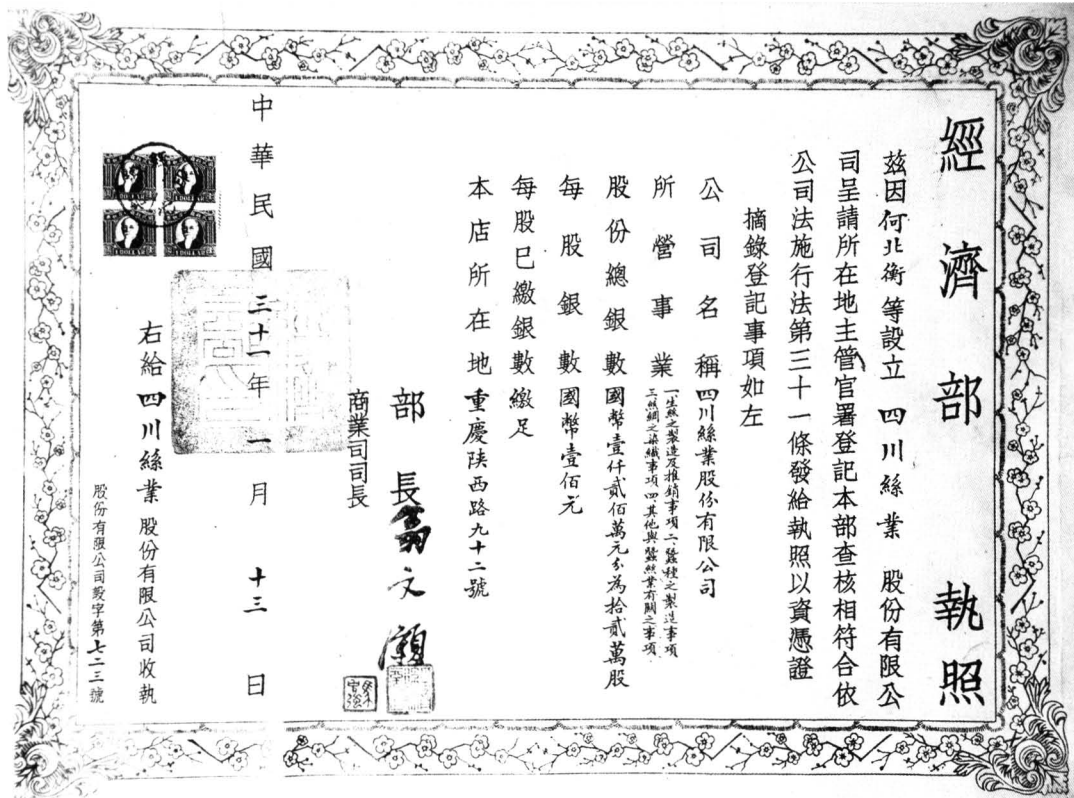 經濟部執照
茲因何北衡等設立四川絲業股份有限公
司呈請所在地主管官署登記本部查核相符合依
公司法施行法第三十一條發給執照以資憑證
摘錄登記事項如左
公司名稱四川絲業股份有限公司
所營事業一生絲之製造及推銷事項二、蠶種之製造事項
三絲綢之染織事項四其他與蠶絲業有關之事項
股份總銀數國幣壹仟貳佰萬元分為拾貳萬股
每股銀數國幣壹佰元
每股已繳銀數繳足
本店所在地重慶陝西路九十二號
部長翁文灝
商業司司長
中華民國三十一年一月十三日
右給四川絲業股份有限公司收執
股份有限公司設字第七二三號
1 DOLLAR
1 DOLLAR
1 DOLLAR
1 DOLLAR